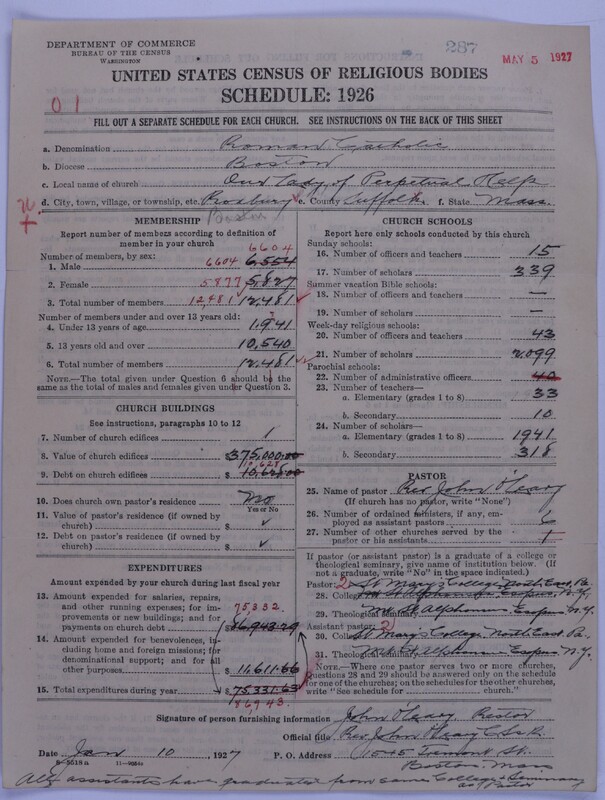 DEPARTMENT OF COMMERCE
BUREAU OF THE CENSUS
WASHINGTON
287
MAY 5 1927
UNITED STATES CENSUS OF RELIGIOUS BODIES
SCHEDULE: 1926
01
FILL OUT A SEPARATE SCHEDULE FOR EACH CHURCH. SEE INSTRUCTIONS ON THE BACK OF THIS SHEET
a. Denomination Roman Catholic
b. Diocese Boston
c. Local name of church Our Lady of Perpetual Help
d. City, town, village, or township, etc. Roxbury e. County Suffolk f. State Mass.
Boston
MEMBERSHIP
Report number of members according to definition of
member in your church
Number of members, by sex: 6604
1. Male 6604 6,554
2. Female 5877 5,827
3. Total number of members 12,481 12,481
Number of members under and over 13 years old:
4. Under 13 years of age 1,941
5. 13 years old and over 10,540
6. Total number of members 12,481
NOTE.—The total given under Question 6 should be the
same as the total of males and females given under Question 3.
CHURCH BUILDINGS
See instructions, paragraphs 10 to 12
7. Number of church edifices 1
8. Value of church edifices $375,000.00
10,628
9. Debt on church edifices $
10. Does church own pastor's residence No
Yes or No
11. Value of pastor's residence (if owned by
church) $ ✓
12. Debt on pastor's residence (if owned by
church) $ ✓
EXPENDITURES
Amount expended by your church during last fiscal year
13. Amount expended for salaries, repairs,
and other running expenses; for im-
provements or new buildings; and for
payments on church debt 75,332. $
14. Amount expended for benevolences, in-
cluding home and foreign missions; for
denominational support; and for all
other purposes $11,611.66
15. Total expenditures during year $75,331.63
86943.
CHURCH SCHOOLS
Report here only schools conducted by this church
Sunday schools:
16. Number of officers and teachers 15
17. Number of scholars 339
Summer vacation Bible schools:
18. Number of officers and teachers —
19. Number of scholars —
Week-day religious schools:
20. Number of officers and teachers 43
21. Number of scholars 2,099
Parochial schools:
22. Number of administrative officers
23. Number of teachers—
a. Elementary (grades 1 to 8) 33
b. Secondary 10
24. Number of scholars—
a. Elementary (grades 1 to 8) 1941
b. Secondary 318
PASTOR
25. Name of pastor Rev John O'Leary
(If church has no pastor, write "None")
26. Number of ordained ministers, if any, em-
ployed as assistant pastors 6
27. Number of other churches served by the
pastor or his assistants 1
If pastor (or assistant pastor) is a graduate of a college or
theological seminary, give name of institution below. (If
not a graduate, write "No" in the space indicated.)
Pastor: 2 St Mary's College, North East, Pa.
28. College
29. Theological seminary Mt. St Alphonsus Esopus N.Y.
Assistant pastor: 2
30. College St Mary's College, North East Pa.
31. Theological Mt. St Alphonsus Esopus N.Y.
NOTE.—Where one pastor serves two or more churches,
Questions 28 and 29 should be answered only on the schedule
for one of the churches; on the schedules for the other churches,
write "See schedule for ............ church."
Signature of person furnishing information John O'Leary Rector
Official title Rev John O'Leary C.Ss.R.
Date Jan 10, 1927 P. O. Address 1545 Tremont St.
Boston, Mass
8—5518 a 11—9054
All assistants have graduated from same College & Seminary
as Pastor